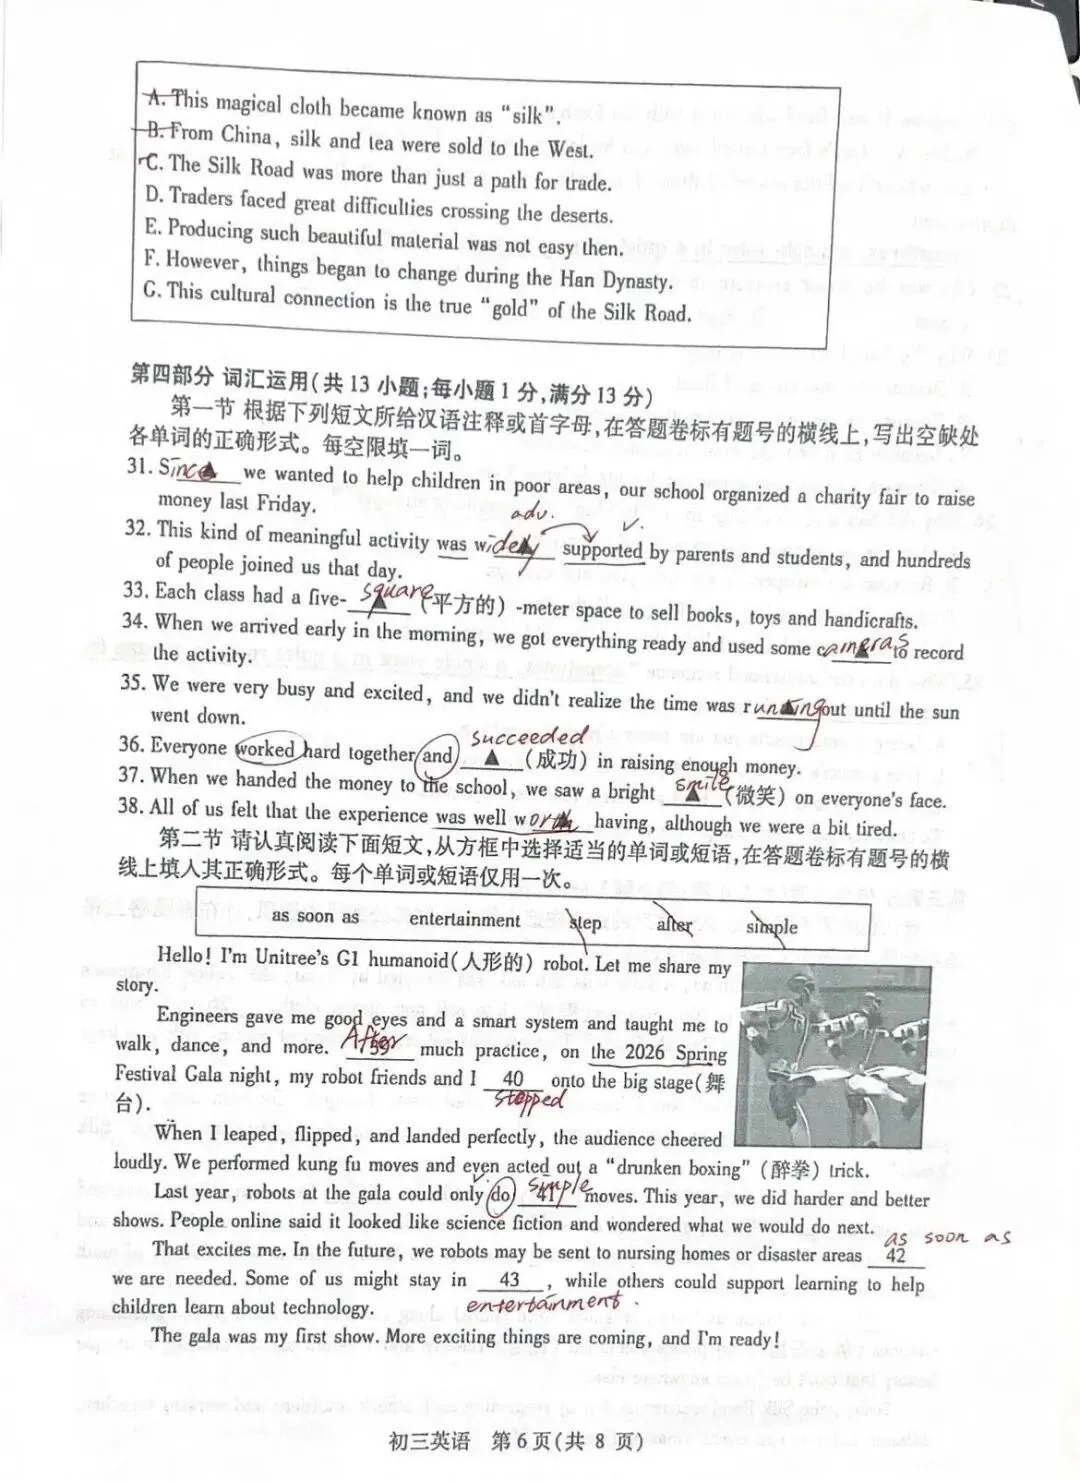 A. This magical cloth became known as "silk".
B. From China, silk and tea were sold to the West.
C. The Silk Road was more than just a path for trade.
D. Traders faced great difficulties crossing the deserts.
E. Producing such beautiful material was not easy then.
F. However, things began to change during the Han Dynasty.
G. This cultural connection is the true "gold" of the Silk Road.
第四部分 词汇运用(共 13 小题;每小题 1 分,满分 13 分)
第一节 根据下列短文所给汉语注释或首字母,在答题卷标有题号的横线上,写出空缺处
各单词的正确形式。每空限填一词。
31. Since▲ we wanted to help children in poor areas, our school organized a charity fair to raise
money last Friday.
adv. v.
32. This kind of meaningful activity was widely▲ supported by parents and students, and hundreds
of people joined us that day.
33. Each class had a five- square▲ (平方的) -meter space to sell books, toys and handicrafts.
34. When we arrived early in the morning, we got everything ready and used some cameras▲ to record
the activity.
35. We were very busy and excited, and we didn't realize the time was running▲ out until the sun
went down.
succeeded
36. Everyone worked hard together and ▲ (成功) in raising enough money.
37. When we handed the money to the school, we saw a bright smile▲ (微笑) on everyone's face.
38. All of us felt that the experience was well worth▲ having, although we were a bit tired.
第二节 请认真阅读下面短文,从方框中选择适当的单词或短语,在答题卷标有题号的横
线上填入其正确形式。每个单词或短语仅用一次。
as soon as entertainment step after simple
Hello! I'm Unitree's G1 humanoid(人形的) robot. Let me share my
story.
Engineers gave me good eyes and a smart system and taught me to
walk, dance, and more. After 39 much practice, on the 2026 Spring
Festival Gala night, my robot friends and I 40 onto the big stage(舞
stepped
台).
When I leaped, flipped, and landed perfectly, the audience cheered
loudly. We performed kung fu moves and even acted out a "drunken boxing" (醉拳) trick.
Last year, robots at the gala could only do simple 41 moves. This year, we did harder and better
shows. People online said it looked like science fiction and wondered what we would do next.
as soon as
That excites me. In the future, we robots may be sent to nursing homes or disaster areas 42
we are needed. Some of us might stay in 43 , while others could support learning to help
entertainment.
children learn about technology.
The gala was my first show. More exciting things are coming, and I'm ready!
初三英语 第 6 页(共 8 页)